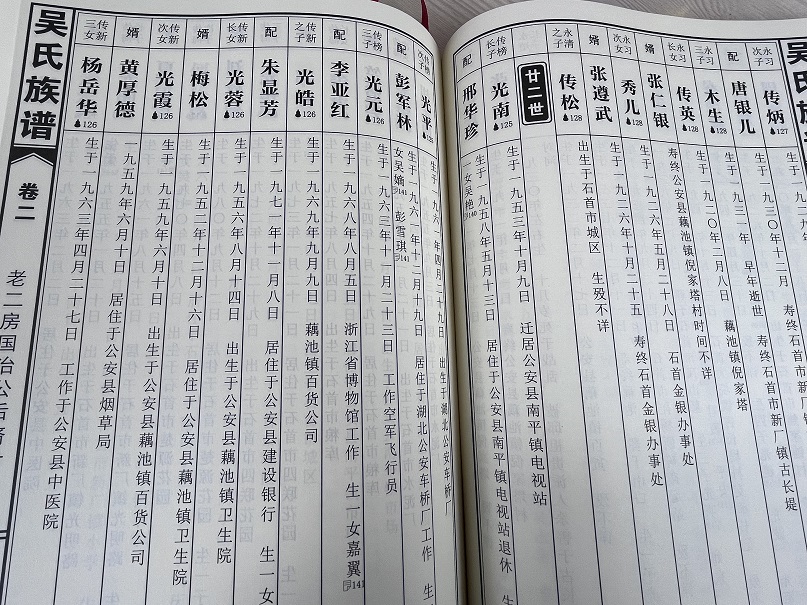 吴氏族
永习次子 传炳 127 生于一九三〇年十二月 寿终石首市新厂镇古长堤
配 唐银儿 生于一九三一年 早年逝世
永习三子 木生 128 生于一九二〇年二月八日 藕池镇倪家塔
永习长女 传英 128 寿终公安县藕池镇倪家塔村时间不详
婿 张仁银 生于一九二六年五月二十八日 石首金银办事处
永习次女 秀儿 128 生于一九二六年十月二十五 寿终石首金银办事处
婿 张遵武
永清之子 传松 128 出生于石首市城区 生殁不详
廿二世
传榜长子 光南 125 生于一九五三年十月九日 迁居公安县南平镇电视站
配 邢华珍 生于一九五八年五月十三日 居住于公安县南平镇电视站退休 生
一女吴艳 140
传榜次子 光平 126 生于一九六一年四月二十九日 出生于湖北公安车桥厂
配 彭军林 生于一九六一年十二月十九日 居住于湖北公安车桥厂工作 生
女吴嫡 141 彭雪琪 141
传榜三子 光元 126 生于一九六三年十一月二十三日 工作空军飞行员
配 李亚红 生于一九六八年八月五日 浙江省博物馆工作 生一女嘉翼 141
传新之子 光皓 126 生于一九六九年九月九日 藕池镇百货公司
配 朱显芳 生于一九七一年十一月八日 居住于公安县建设银行 生一女
传新长女 光蓉 126 生于一九五六年八月十四日 出生于公安县藕池镇卫生院
婿 梅松 生于一九五二年十二月十六日 居住于公安县藕池镇卫生院
传新次女 光霞 126 生于一九五九年六月十日 出生于公安县藕池镇百货公司
婿 黄厚德 一九五九年六月十日 居住于公安县烟草局
传新三女 杨岳华 126 生于一九六三年四月二十七日 工作于公安县中医院
吴氏族谱 卷二 老二房国治公后裔